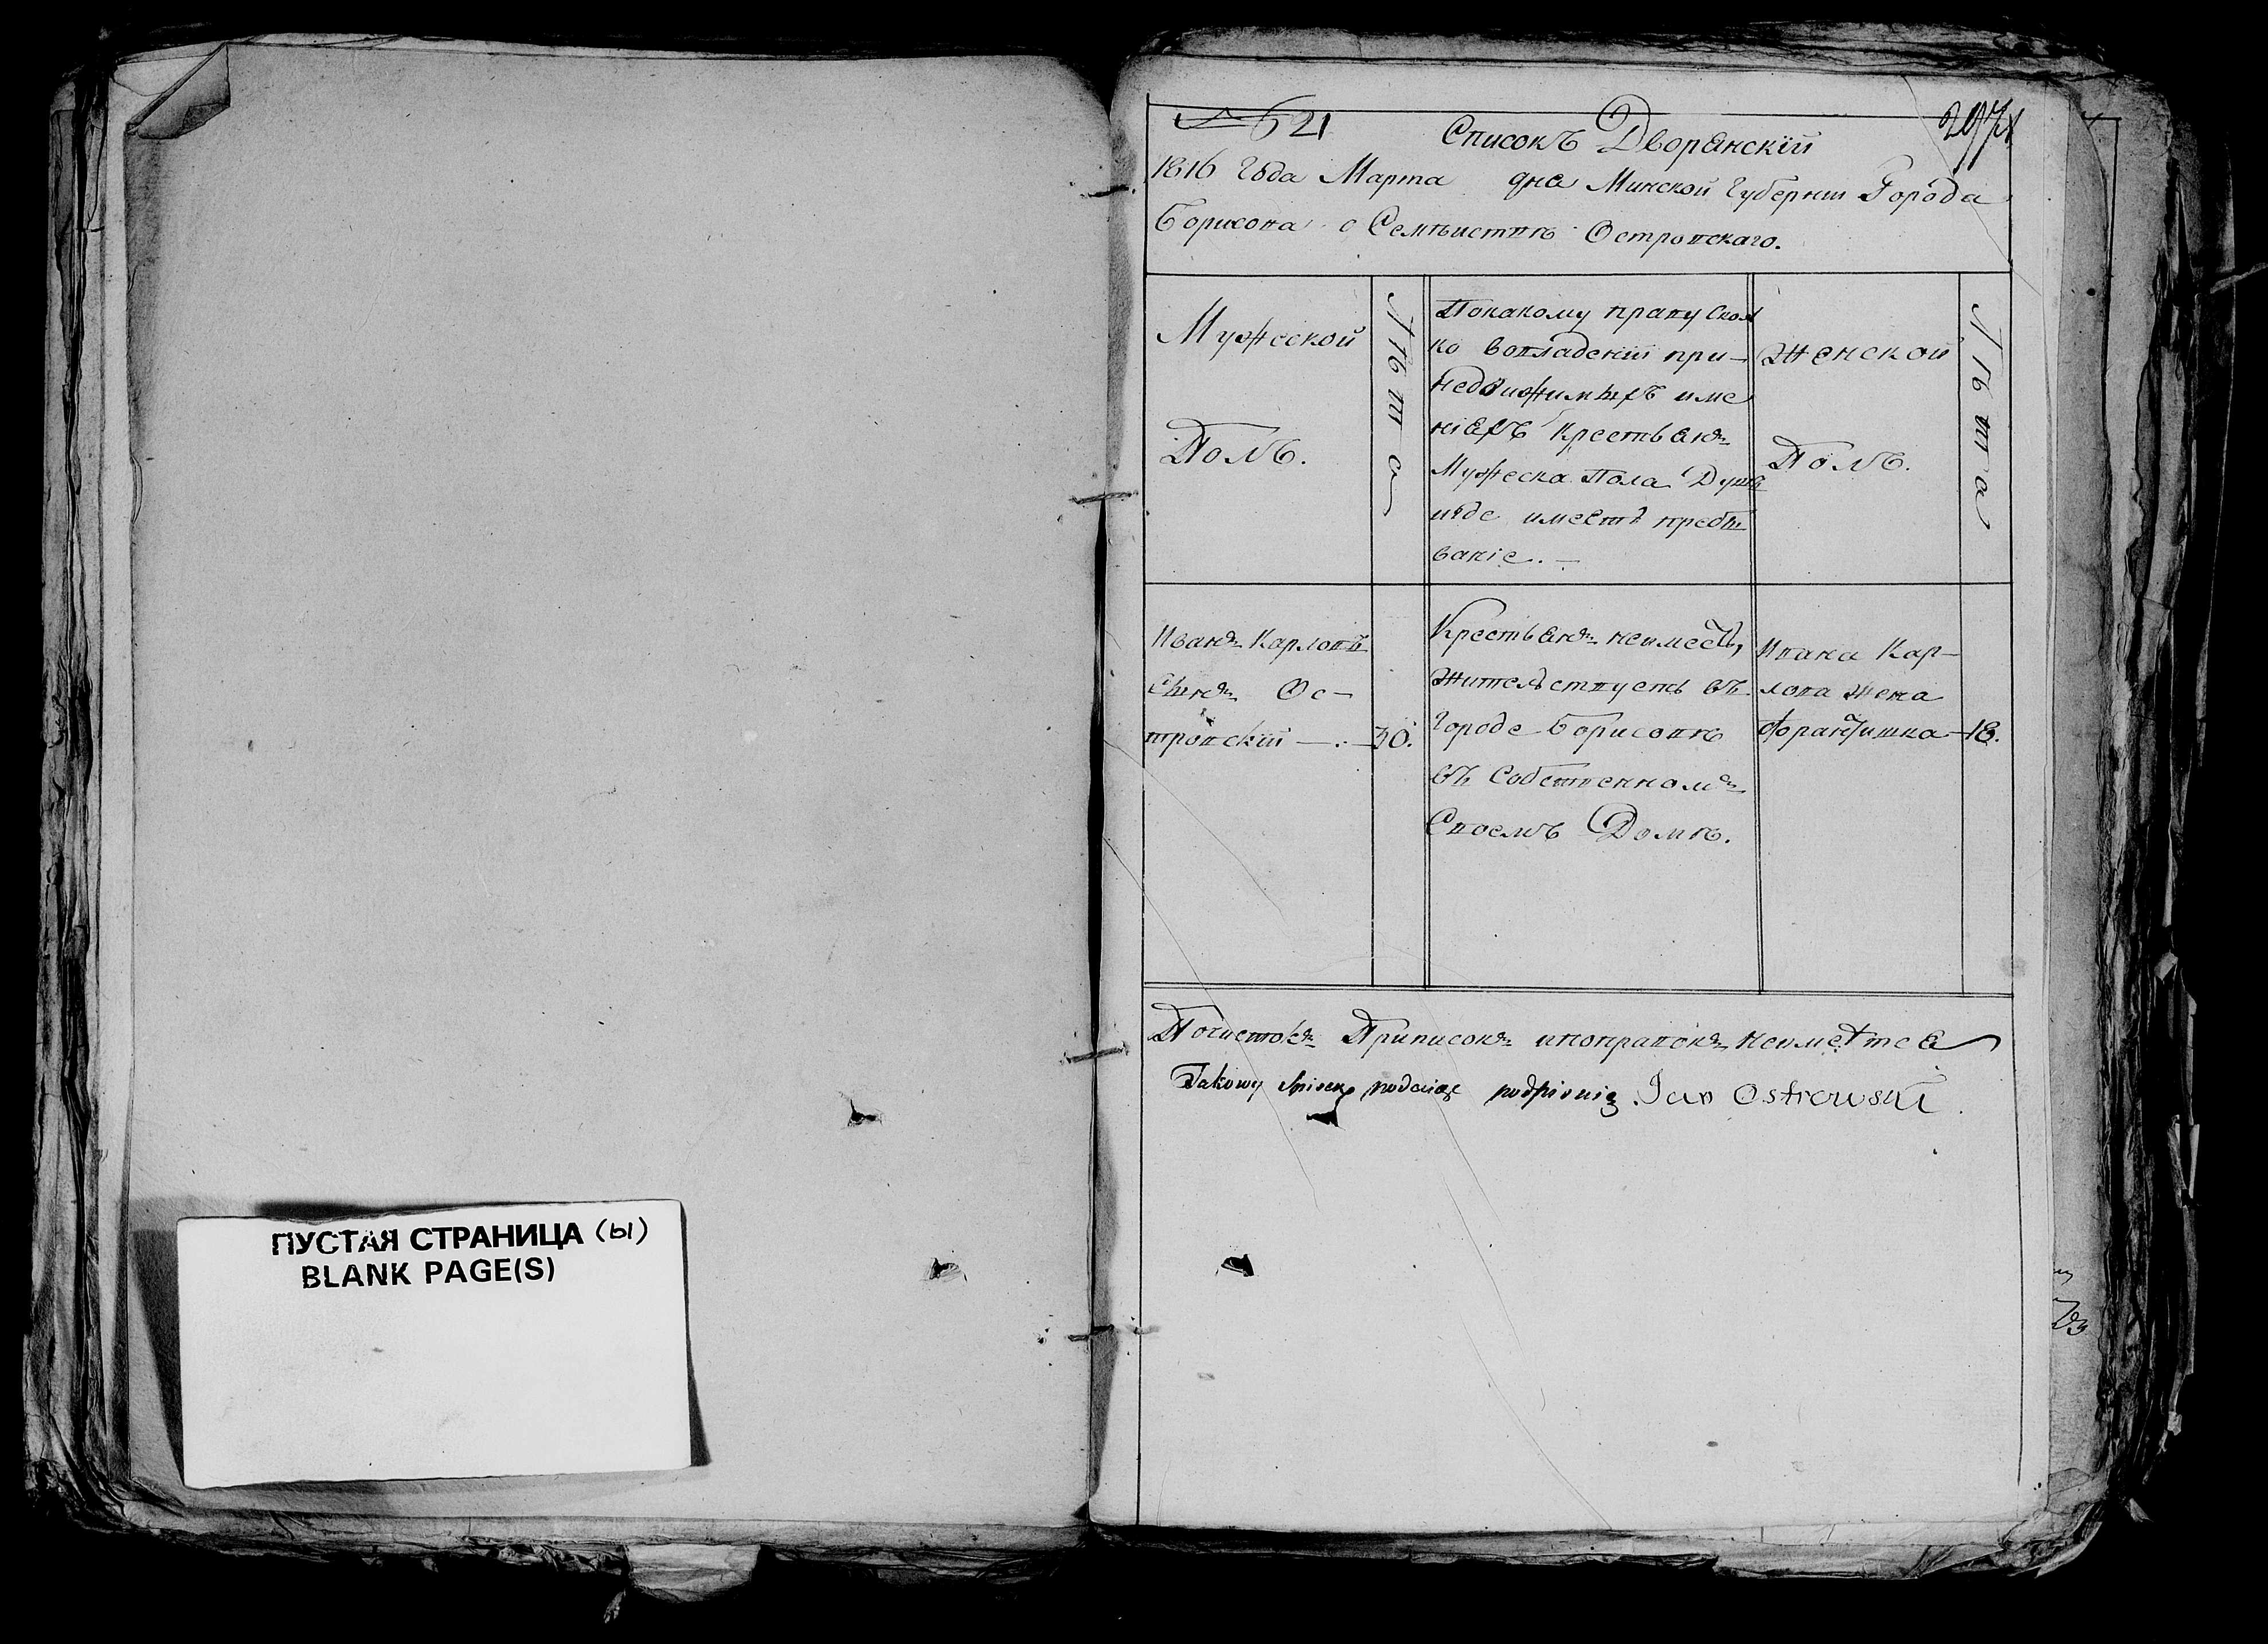 № 621
Списокъ Дворянскій
1816 Года Марта дня Минской Губерніи Города
Борисова о Семѣиствѣ Островскаго.
Мужеской
Полъ.
Лѣта
Покакому праву Скол
ко вовладеніи при-
недвижимыхъ име
ніяхъ Крестьянъ
Мужеска Пола Душъ
игде имеетъ пребы
ваніе. —
Женской
Полъ.
Лѣта
Иванъ Карловъ
Сынъ Ос-
тровскій — 30.
Крестьянъ неимеетъ,
Жительствуетъ въ
Городе Борисовѣ
въ Собственномъ
Своемъ Домѣ.
Ивана Кар-
лова жена
Францишка — 18.
Почистокъ Приписокъ ипоправокъ неиметея
Takowy Spisek podaiąc podpisuię Jan Ostrowski
ПУСТАЯ СТРАНИЦА (Ы)
BLANK PAGE(S)